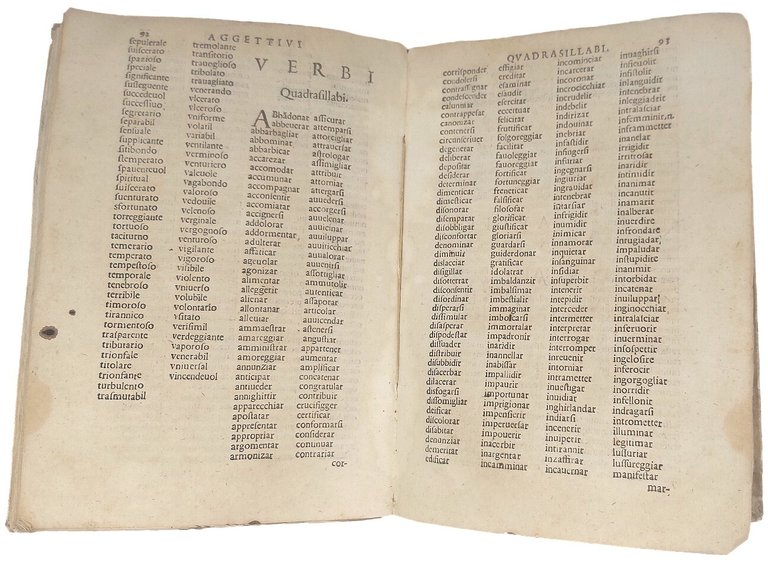 92
AGGETTIVI
sepulcrale
suiscerato
spazioso
speciale
significante
susseguente
succedeuol
successiuo
segretario
separabil
sensuale
supplicante
sitibondo
stemperato
spauenteuol
spiritual
suiscerato
suenturato
sfortunato
torreggiante
tortuoso
taciturno
temerario
temperato
tempestoso
temporale
tenebroso
terribile
timoroso
tirannico
tormentoso
trasparente
tributario
trionfale
titolare
trionfante
turbulento
trasmutabil
tremolante
transitorio
trauaglioso
tribolato
trauagliato
venerando
vlcerato
vlceroso
vniforme
volatil
variabil
ventilante
verminoso
venturiero
valeuole
vagabondo
valoroso
vedouile
velenoso
verginale
vergognoso
venturoso
vigilante
vigoroso
visibile
violento
vniuerso
volubile
volontario
vsitato
verisimil
verdeggiante
vaporoso
venerabil
vniuersal
vincendeuol
VERBI
Quadrasillabi.
ABbãdonar
abbeuerar
abbarbagliar
abbominar
abbarbicar
accarezzar
accomodar
accumunar
accompagnar
accostumar
accomiatar
accignersi
addolorar
addormentar
adulterar
affaticar
ageuolar
agonizar
alimentar
alleggerir
alienar
allontanar
alleuiar
ammaestrar
amareggiar
amministrar
amoreggiar
annunziar
anticipar
antiueder
annighittir
apparecchiar
apostatar
appresentar
appropriar
argomentar
armonizar
assicurar
attemparsi
attoreggiar
attrauersar
astrologar
assimigliar
attribuir
attorniar
atterrarsi
auuenenar
accorgersi
attenebrar
auuiluppar
auuicinar
auuiticchiar
auualorar
auuentsi
assottigliar
ammutolir
assordar
assapotar
articolar
auuicendar
astenersi
angustiar
appartener
aumentar
amplificar
concatenar
congratular
contribuir
crucifigger
certificar
conformarsi
considerar
continuar
contrariar
cor-
QVADRASILLABI.
93
corrisponder
condolersi
contrassegnar
condescender
calunniar
contrappesar
canonizar
contenersi
circunscriuer
degenerar
deliberar
depositar
desiderar
determinar
dimenticar
dimesticar
disonorar
distemperar
disobbligar
disconfortar
denominar
diminuir
dislacciar
disigillar
disotterrar
disconsentir
disordinar
disperarsi
dissimular
disasperar
dispodestar
dissuader
distribuir
disubbidir
disacerbar
dilacerar
disfogarsi
dissomigliar
deificar
discolorar
disabitar
denunziar
demeritar
edificar
effigiar
ereditar
esaminar
esaudir
esercitar
eccettuar
felicitar
fruttificar
facilitar
fauoleggiar
fauoreggiar
fortuneggiar
freneticar
falsificar
filosofar
glorificar
giustificar
gloriarsi
guardarsi
guerreggiar
gratificar
idolatrar
imbaldanzir
imbalsimar
imbestialir
immaginar
imboscarsi
immortalar
impadronir
impaludar
inanellar
inabissar
impallidir
impaurir
importunar
imprigionar
impensierir
imperuersar
impouerir
inacerbir
inargentar
incamminar
incominciar
incarcerar
incenerar
incrocicchiar
incrudelir
indebolir
indirizar
indouinar
inebriar
infastidir
infingersi
infiammar
ingigantir
ingiuriar
ingrauidar
intenebrar
incantar
instanziar
infrigidir
inumidir
inimicar
innamorar
innamorar
insanguinar
insidiar
insuperbir
intenerir
intepidir
interceder
intermetter
interpretar
interrogar
interromper
inreuenir
intarlar
interdir
intrametter
inuestigar
inorgoglir
inghirlandar
indiarsi
incenerir
inuiperir
intirizir
inzaffirar
incauernar
inuaghirsi
insenolit
insistolir
inlanguidir
intenebrir
inleggiadrir
insanir
infemminir
infiammetter
inanelar
irrigidir
irritrosir
intimidir
inanimir
inanimar
inalberar
inuerdir
infrondare
intrugiadar
impaludar
instupidire
inanimit
intorbidar
incatenar
inuiluppar
inginocchiar
intralasciar
inferuorir
inuerminar
insospettir
ingelosire
inferocir
ingorgogliar
inorridir
infellonir
indragarsi
intrometter
illuminar
legitimar
lussuriar
lussureggiar
manifestar
mar-